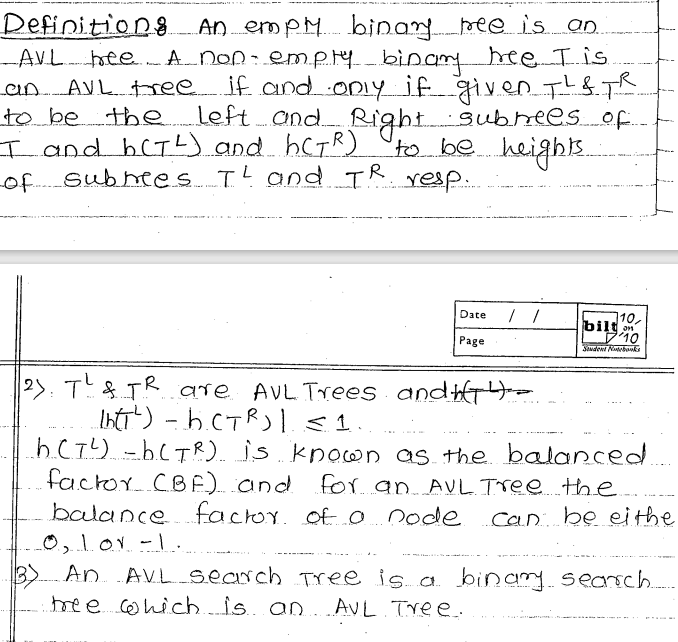 Definitions An empty binary tree is an
AVL tree. A non-empty binary tree T is
an AVL tree if and only if given T^L & T^R
to be the left and Right subtrees of
T and h(T^L) and h(T^R) to be heights
of subtrees T^L and T^R resp.
Date / /
Page
bilt 10 on 10
Student Notebooks
2). T^L & T^R are AVL Trees and h(T^L) -
|h(T^L) - h(T^R)| ≤ 1.
h(T^L) - h(T^R) is known as the balanced
factor (BF) and for an AVL Tree the
balance factor of a node can be eithe
0, 1 or -1.
3) An AVL search Tree is a binary search
tree which is an AVL Tree.